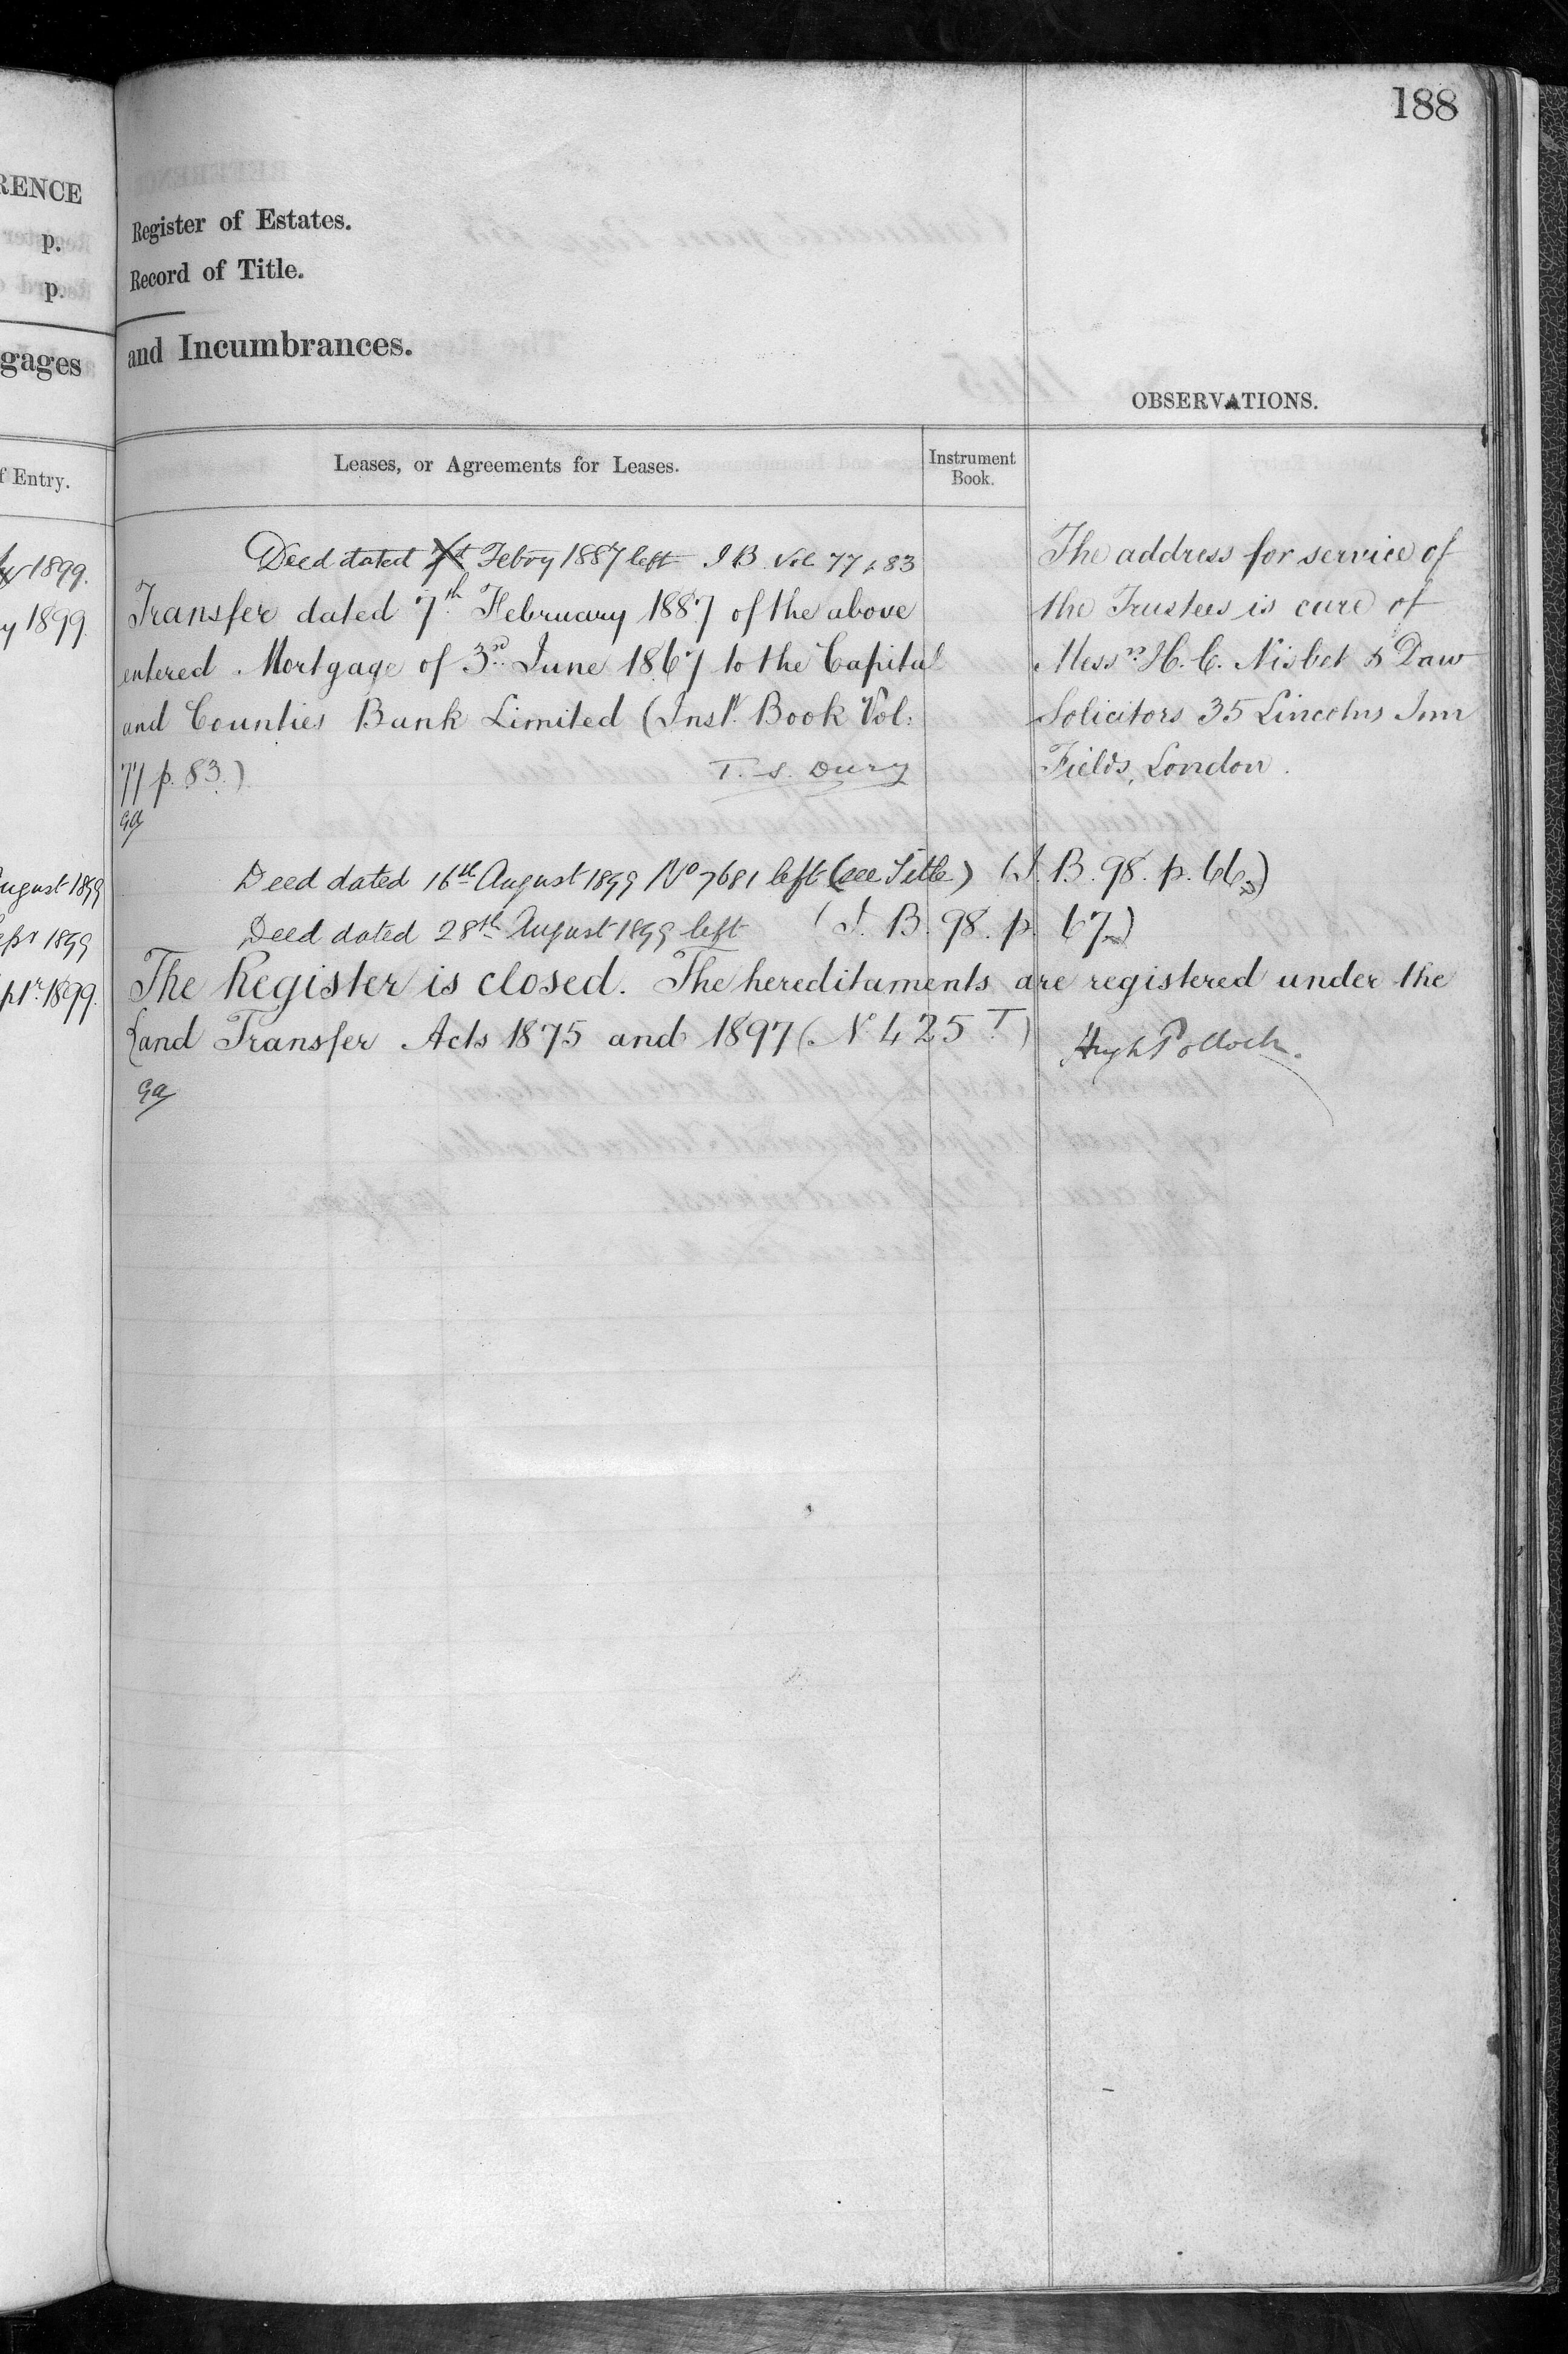 188
RENCE
p.
p.
gages
f Entry.
1899.
y 1899.
August 1899
Sepr 1899
ptr. 1899.
Register of Estates.
Record of Title.
and Incumbrances.
OBSERVATIONS.
Leases, or Agreements for Leases.
Instrument
Book.
Deed dated Febry 1887 left I B Vol 77 p 83
Transfer dated 7th February 1887 of the above
entered Mortgage of 3rd June 1867 to the Capital
and Counties Bank Limited (Inst. Book Vol:
77 p. 83.)
T. S. Dury
Ga
The address for service of
the Trustees is care of
Messrs H. C. Nisbet & Daw
Solicitors 35 Lincolns Inn
Fields, London.
Deed dated 16th August 1899 No 7681 left (see Title) (I. B. 98. p. 66.)
Deed dated 28th August 1899 left (I. B. 98. p. 67.)
The Register is closed. The hereditaments are registered under the
Land Transfer Acts 1875 and 1897 (No 425 T)
Hugh Pollock.
Ga